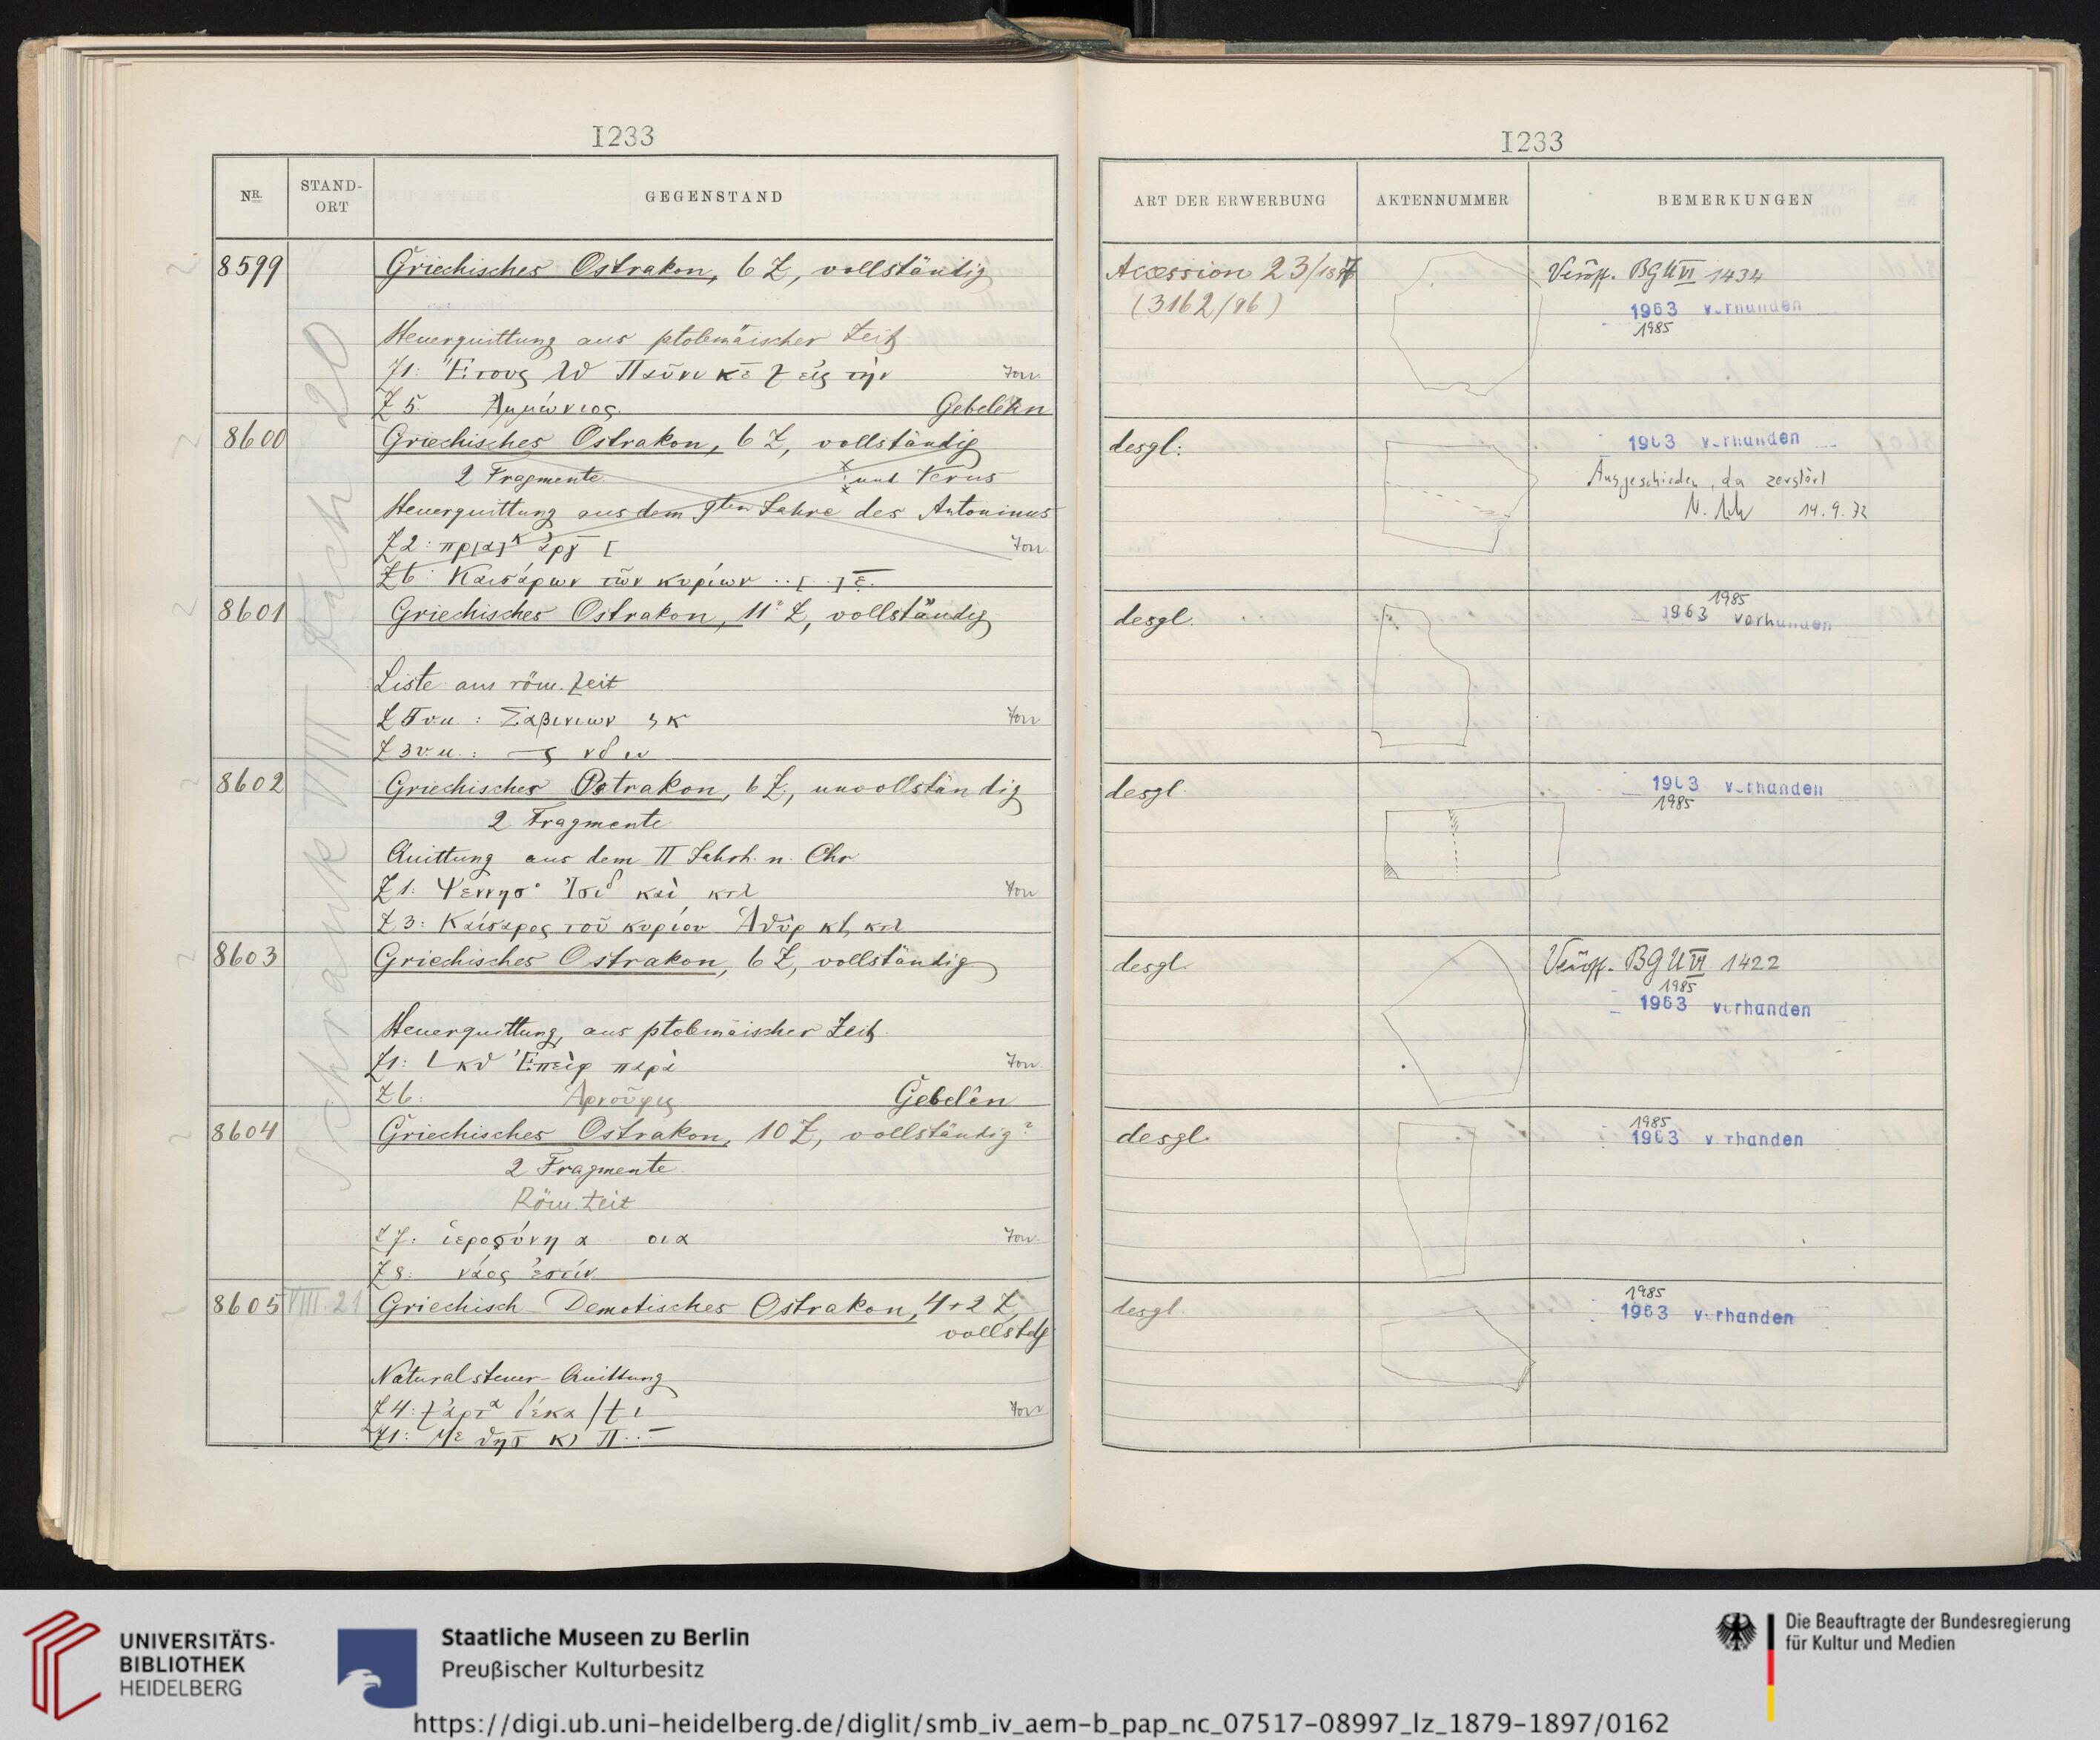 I233
NR. STAND-ORT GEGENSTAND
8599 Griechisches Ostrakon, 6 Z, vollständig
Steuerquittung aus ptolemäischer Zeit
Z1: Ἔτους λθ Παῦνι κε εἰς τὴν Ton
Z 5. Ἀμμώνιος. Gebelên
8600 Griechisches Ostrakon, 6 Z, vollständig
2 Fragmente und Verus
Steuerquittung aus dem 9ten Jahre des Antoninus
Z2: Ton
Z6: Καισάρων τῶν κυρίων ..[..] ε.
8601 Griechisches Ostrakon, 11? Z, vollständig
Liste aus röm. Zeit
Z 5 v.u: Σαβινιων κ Ton
Z 3 v. u.:
8602 Griechisches Ostrakon, 6 Z, unvollständig
2 Fragmente
Quittung aus dem II Jahrh. n. Chr
Z1: Ψεννησ° Ἰσιδ καὶ κτλ Ton
Z 3: Καίσαρος τοῦ κυρίου Ἁθὺρ κτλ
8603 Griechisches Ostrakon, 6 Z, vollständig
Steuerquittung, aus ptolemäischer Zeit
Z1: L κθ Ἐπεὶφ παρὰ Ton
Z 6: Ἁρνοῦφις Gebelên
8604 Griechisches Ostrakon, 10 Z, vollständig?
2 Fragmente
Röm. Zeit
Z 7: ἱεροσύνη α οια Ton
Z 8: νάος ἐστίν
8605 VIII.21 Griechisch-Demotisches Ostrakon, 4+2 Z,
vollstdg
Naturalsteuer-Quittung
Z 4: ἀρτα δέκα Ton
Z1:
Schrank VIII Fach 20
I233
ART DER ERWERBUNG AKTENNUMMER BEMERKUNGEN
Accession 23/1897 Veröff. BGU VI 1434
(3162/96) 1963 vorhanden
1985
desgl: 1963 vorhanden
Ausgeschieden, da zerstört
14.9.72
1985
desgl. 1963 vorhanden
desgl. 1963 vorhanden
1985
desgl. Veröff. BGU VI 1422
1985
1963 vorhanden
1985
desgl. 1963 vorhanden
1985
desgl. 1963 vorhanden
UNIVERSITÄTS-
BIBLIOTHEK
HEIDELBERG
Staatliche Museen zu Berlin
Preußischer Kulturbesitz
Die Beauftragte der Bundesregierung
für Kultur und Medien
https://digi.ub.uni-heidelberg.de/diglit/smb_iv_aem-b_pap_nc_07517-08997_lz_1879-1897/0162